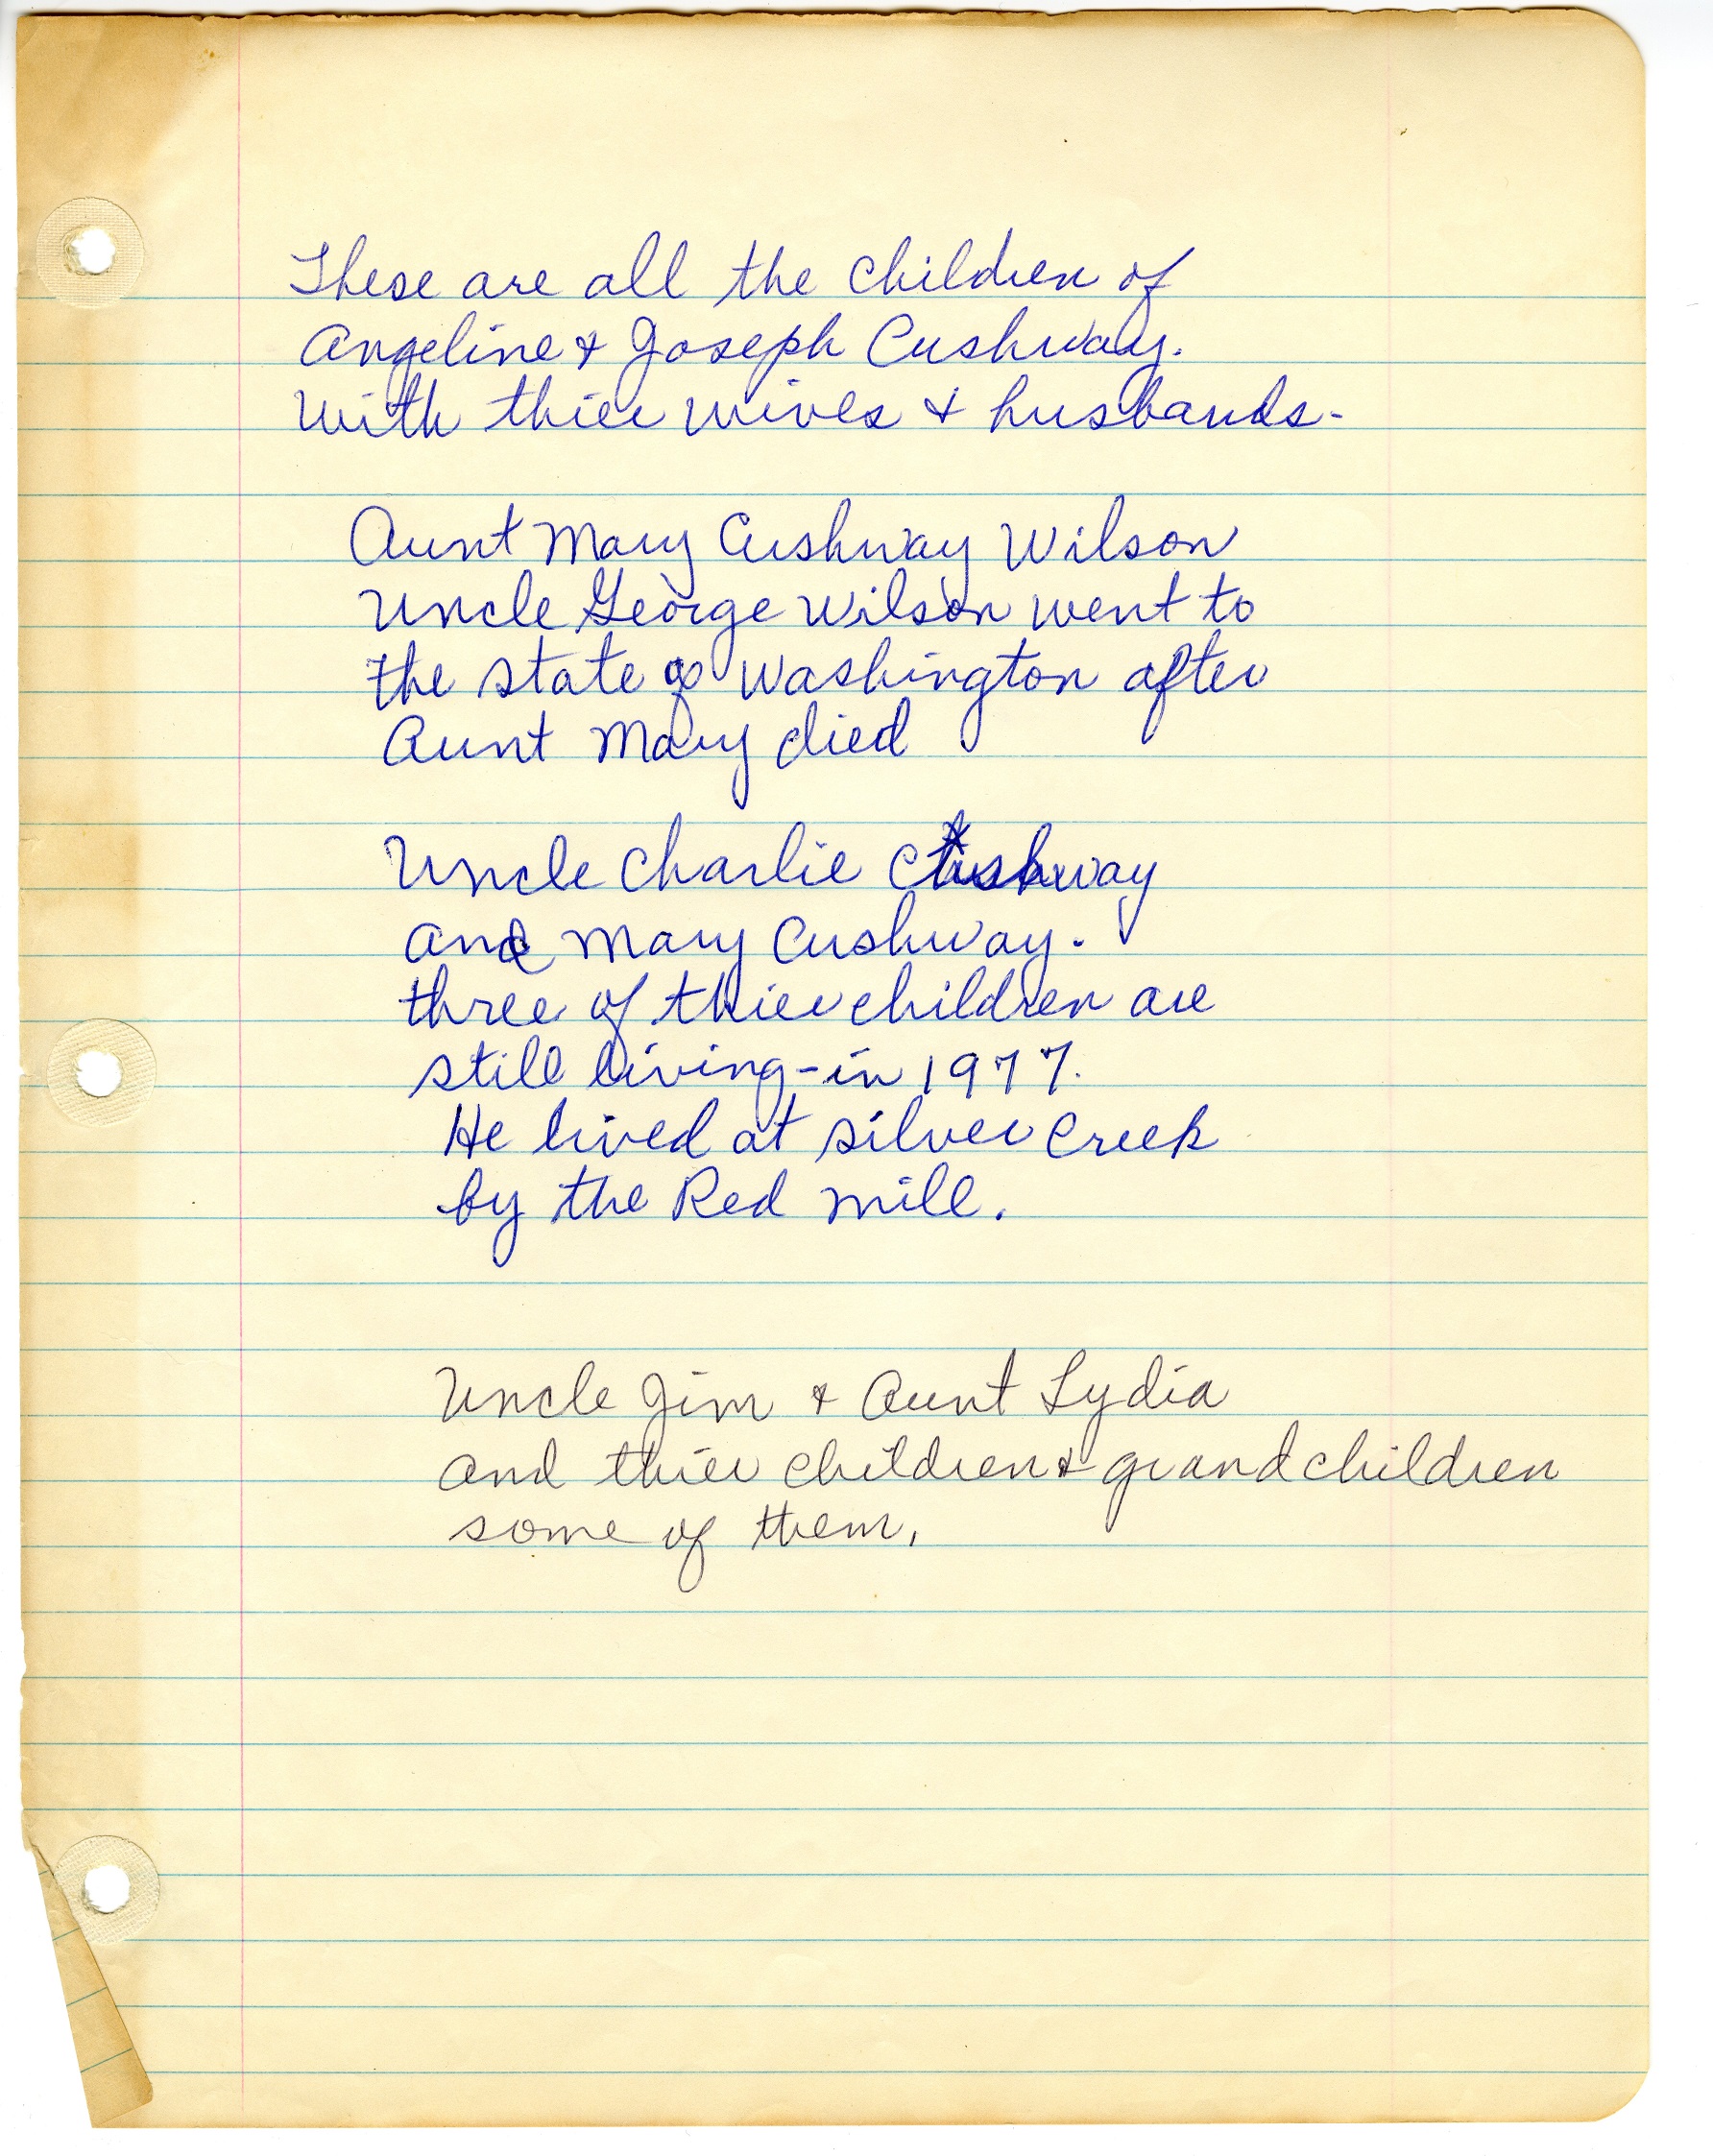 These are all the children of
Angeline & Joseph Cushway.
With thier wives & husbands-
Aunt Mary Cushway Wilson
Uncle George Wilson went to
the state of Washington after
Aunt Mary died
Uncle Charlie Cushway
and Mary Cushway.
three of thier children are
still living-in 1977.
He lived at silver Creek
by the Red mill.
Uncle Jim & Aunt Lydia
and thier children & grandchildren
some of them.